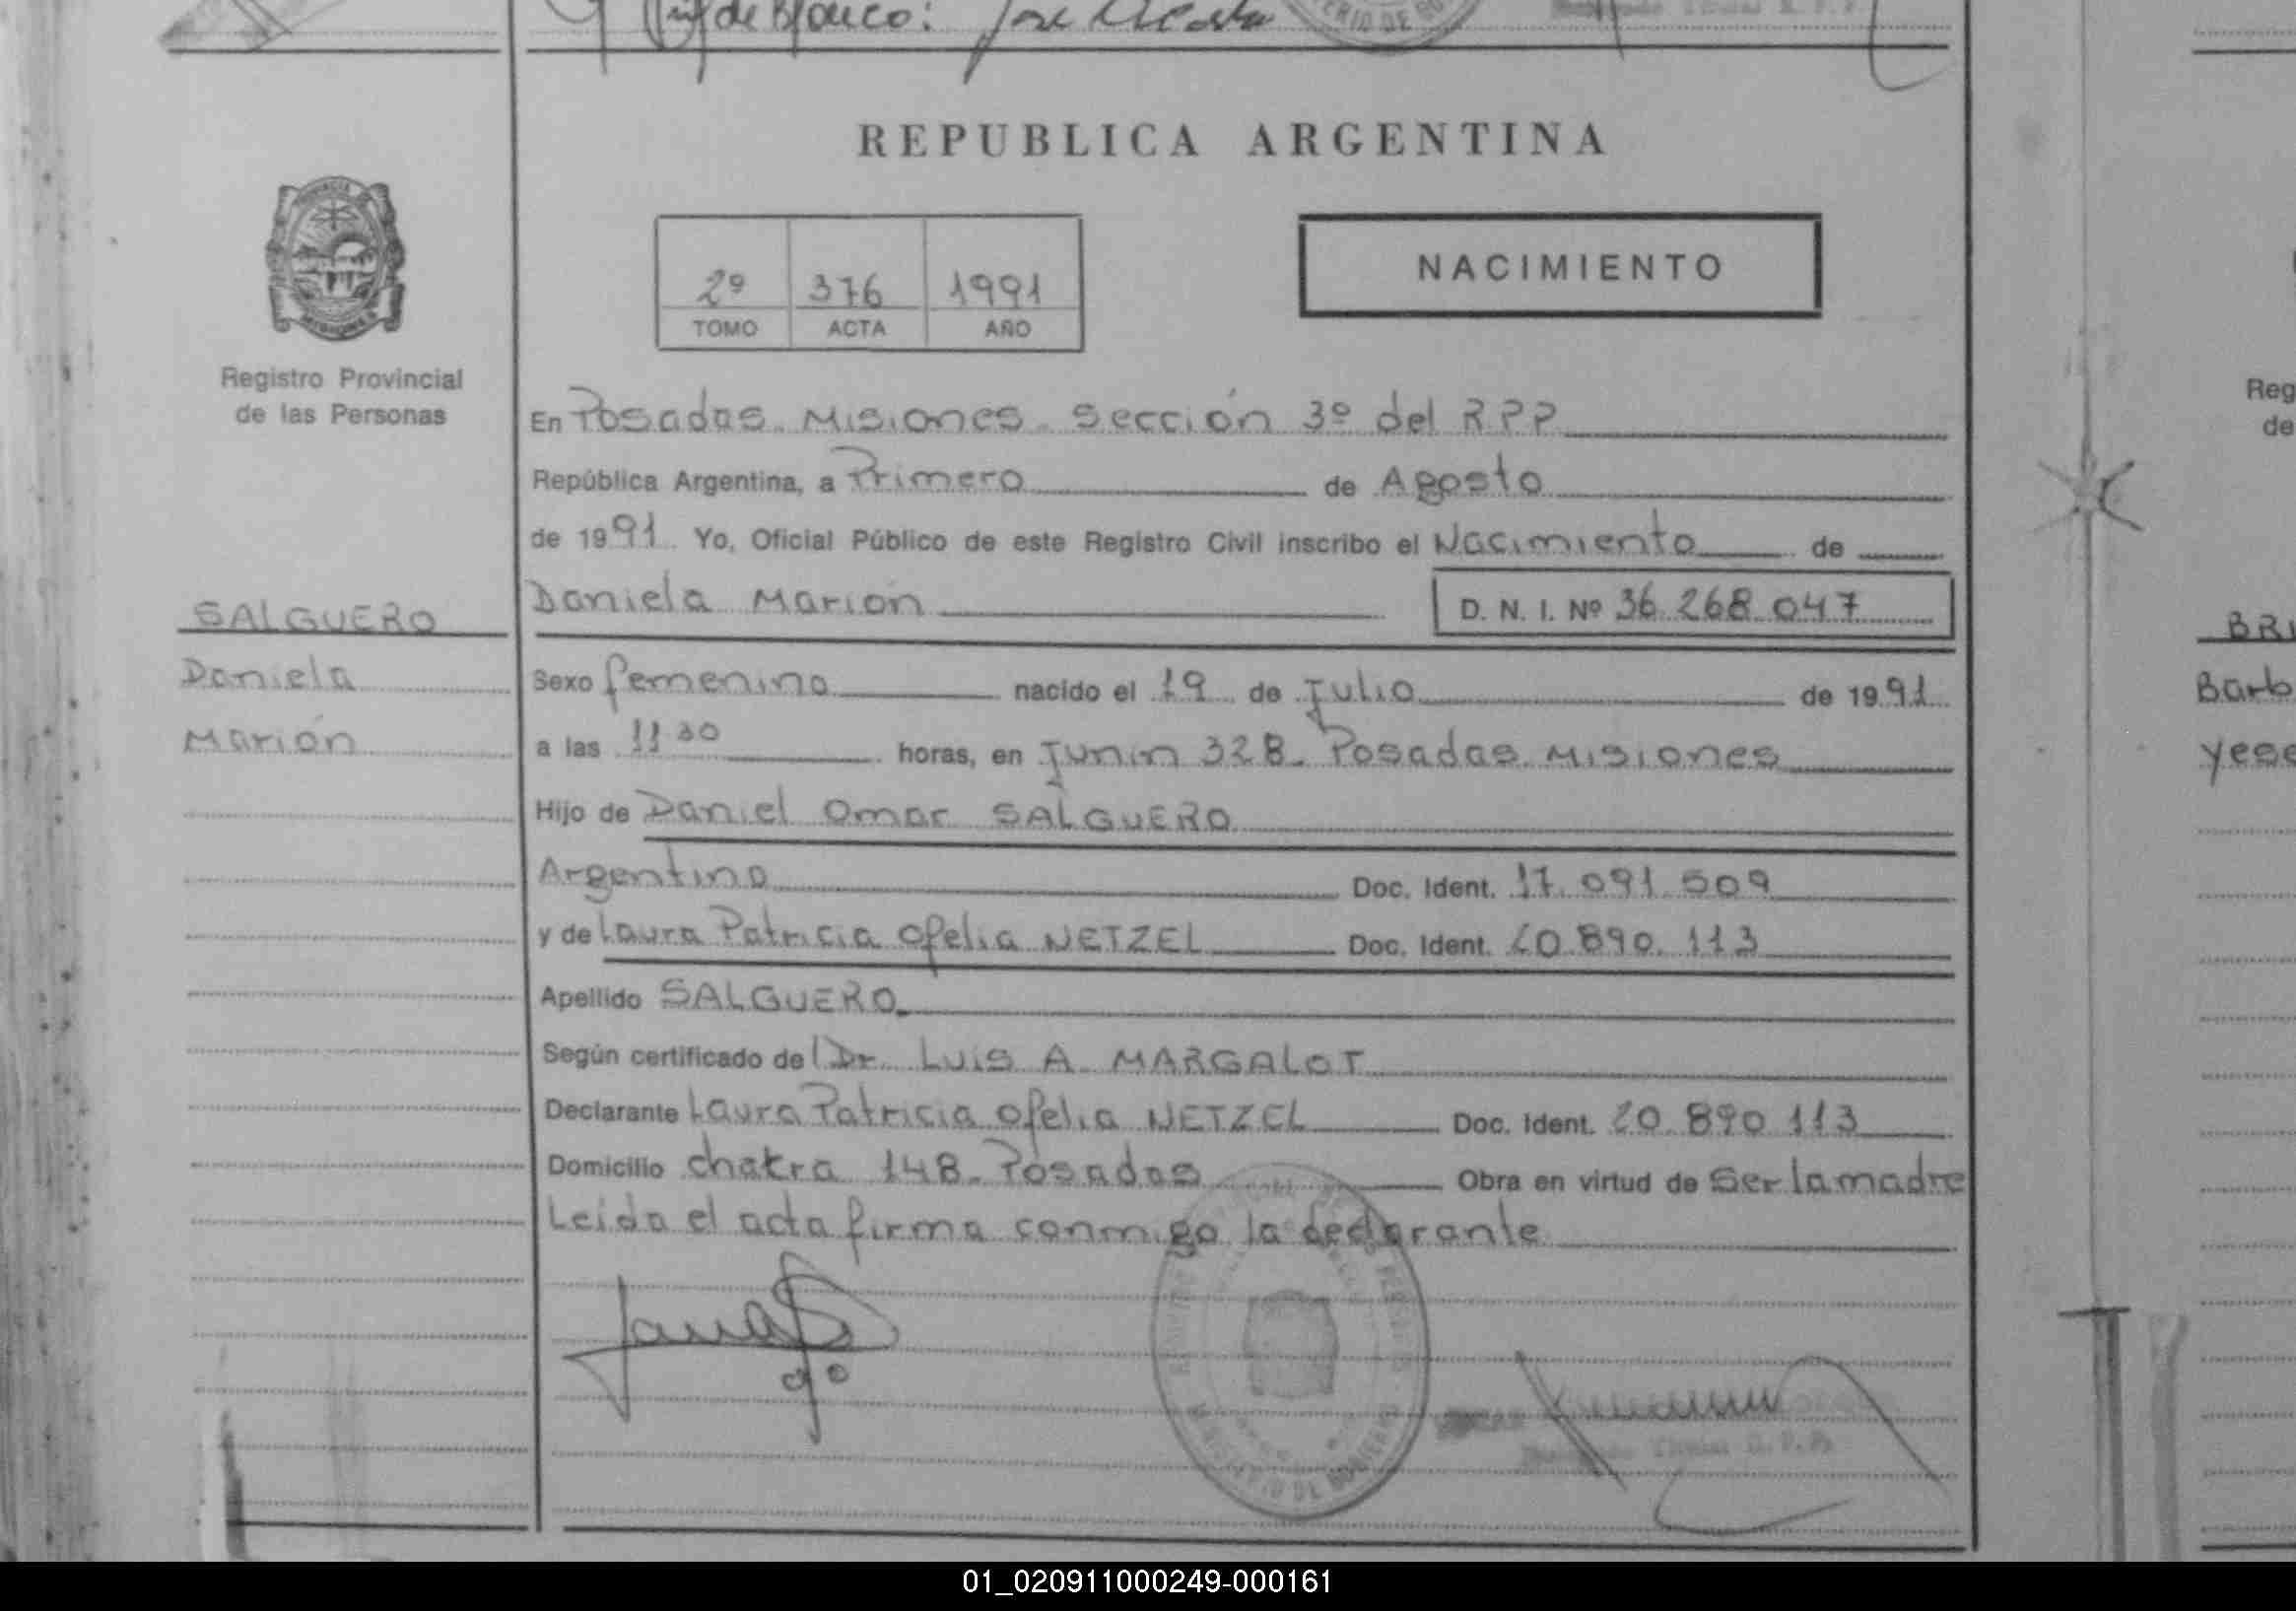 Prof de Blanco: José Acosta
REPUBLICA ARGENTINA
NACIMIENTO
2º 376 1991
TOMO ACTA AÑO
PROVINCIA
MISIONES
Registro Provincial
de las Personas
En Posadas. Misiones. Sección 3º del RPP
República Argentina, a Primero de Agosto
de 1991 Yo, Oficial Público de este Registro Civil inscribo el Nacimiento de
Daniela Marión D. N. I. Nº 36.268.047
SALGUERO
Daniela
Marión
Sexo femenino nacido el 19 de Julio de 1991
a las 11 30 horas, en Junín 328. Posadas. Misiones
Hijo de Daniel Omar SALGUERO
Argentino Doc. Ident. 17.091.509
y de Laura Patricia Ofelia NETZEL Doc. Ident. 20.890.113
Apellido SALGUERO
Según certificado de l Dr. Luis A. MARGALOT
Declarante Laura Patricia Ofelia NETZEL Doc. Ident. 20.890.113
Domicilio chakra 148. Posadas Obra en virtud de Ser la madre
Leída el acta firma conmigo la declarante
MINISTERIO DE GOBIERNO
Titular R.P.P.
Reg
de
BRI
Barb
yese
01_020911000249-000161